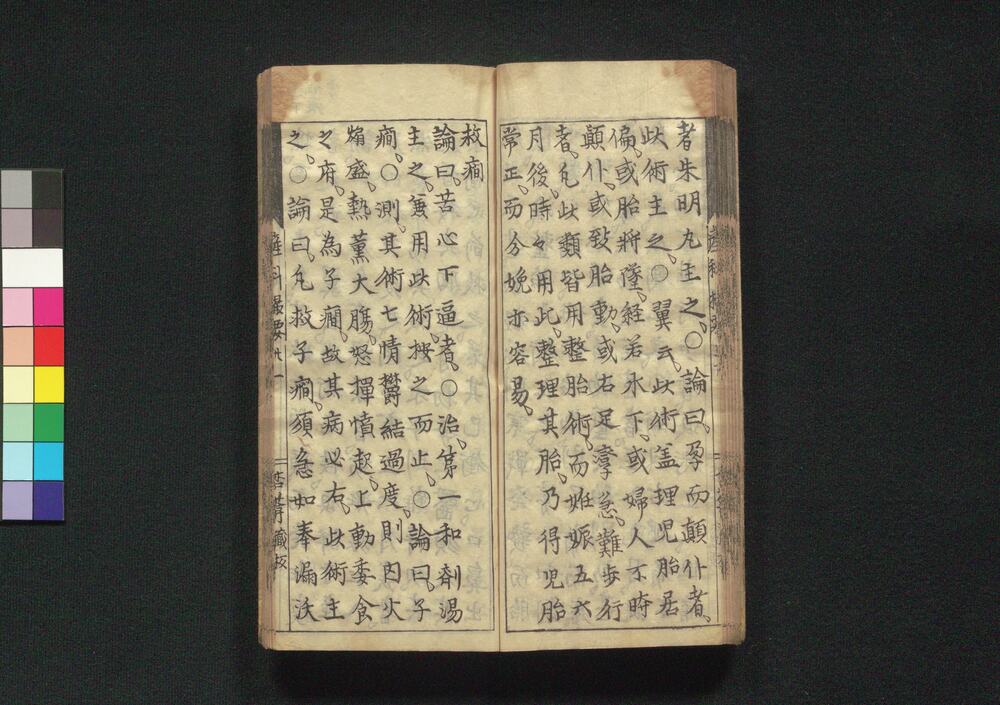 者朱明九主之、○論曰、孕而顛仆者、
此術主之、○翼云、此術盖理児胎居
偏、或胎將墜、経若水下、或婦人不時
顛仆、或致胎動、或右足攣急、難歩行
者、凡此類皆用整胎術、而妊娠五六
月後、時々用此、整理其胎、乃得児胎
常正、而分娩亦容易、
救癇
論曰、苦心下逼者、○治第一和劑湯
主之、兼用此術、按之而止、○論曰、子
癇、○測、其術七情欝結過度、則因火
熖盛、熱薫大膓、怒揮憤起、上動委食
之府、是為子癇、故其病必右、此術主
之、○論曰、凡救子癇、須急如奉漏沃
産科